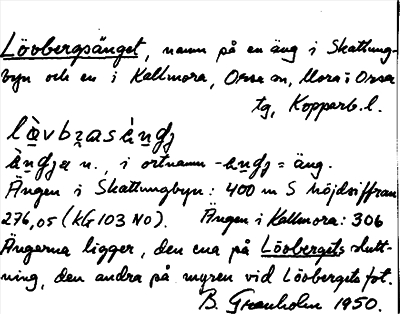 Lövbergsänget, namn på en äng i Skattung-
byn och en i Kallmora, Orsa sn, Mora o Orsa
tg, Kopparb. l.
ängen i ortnamn = äng.
Ängen i Skattungbyn: 400 m S höjdsiffran
276,05 (kG 103 NO). Ängen i Kallmora: 306
Ängarna ligger, den ena på Lövbergets slutt-
ning, den andra på myren vid Lövbergets fot.
B. Granholm 1950.